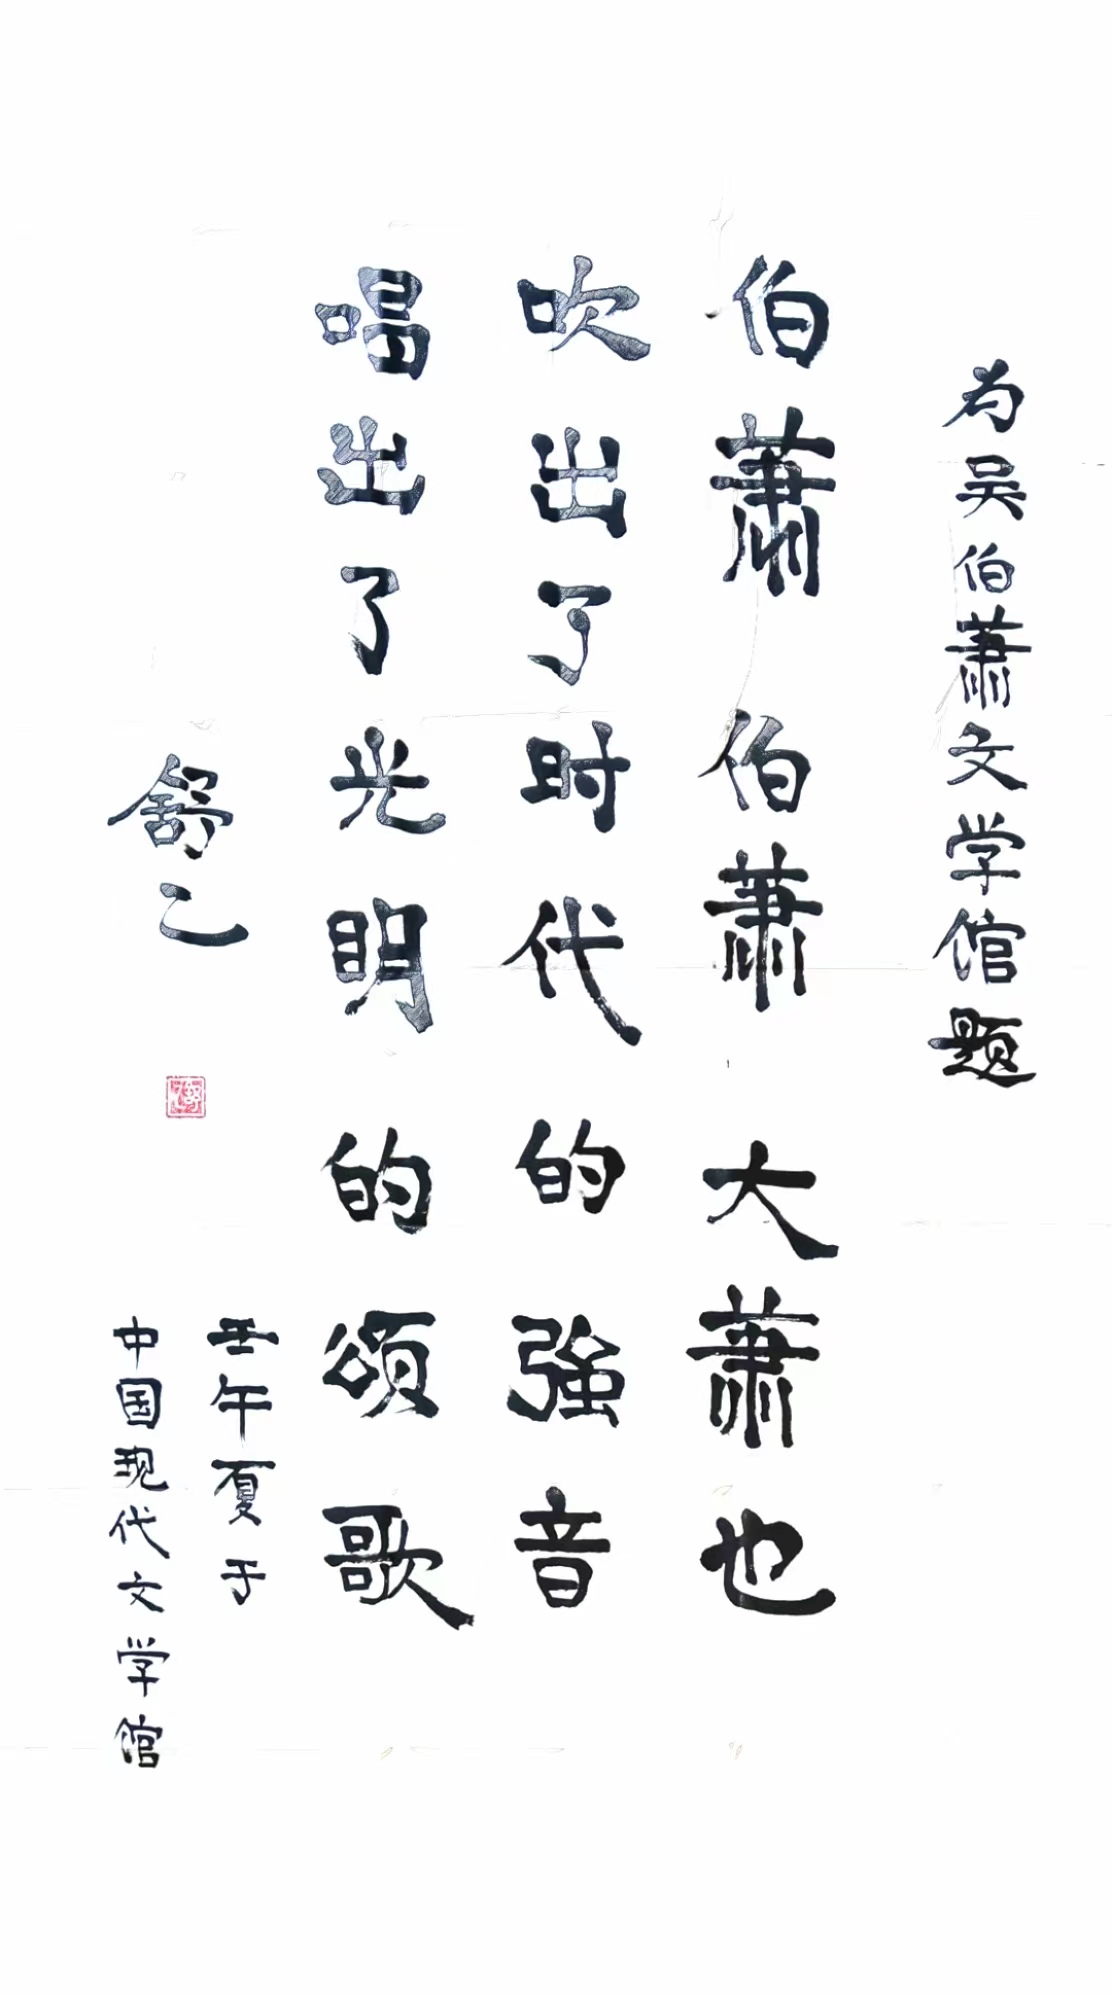 为吴伯萧文学馆题
伯萧 伯萧 大萧也
吹出了时代的強音
唱出了光明的颂歌
舒乙
壬午夏于
中国现代文学馆